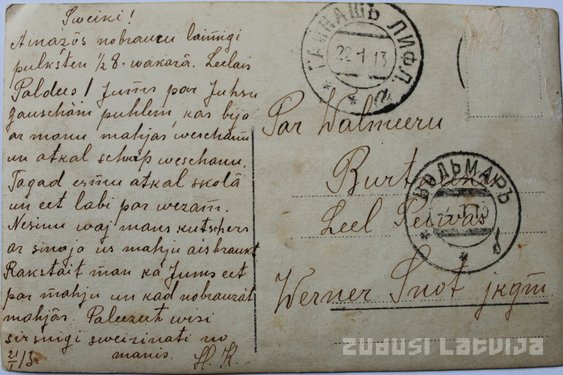 Sweiki!
Ainažôs nobrauzu laimigi
pulksten 1/2 8. wakarâ. Leelais
Paldees! Jums par Juhsu
gauschâm puhlem, kas bijo
ar manu mahjas weschanu
un atkal schurp weschanu.
Tagad esmu atkal skolâ
un eet labi par wezam.
Nesinu waj mans kutschers
ar sirgu is mahju aisbrauzt
Rakstait man kâ Jums eet
par mahju un kad nobrauzât
mahjâs. Paleezeet wisi
sirsnigi sweizinati no
manis. H. K.
21/I 13
ГАЙНАШЪ ЛИФЛ.
22 1 13
а
Par Walmeeru
Burt
Leel
Werner Snot jkgm
ВОЛЬМАРЪ
б
ZUDUSI LATVIJA